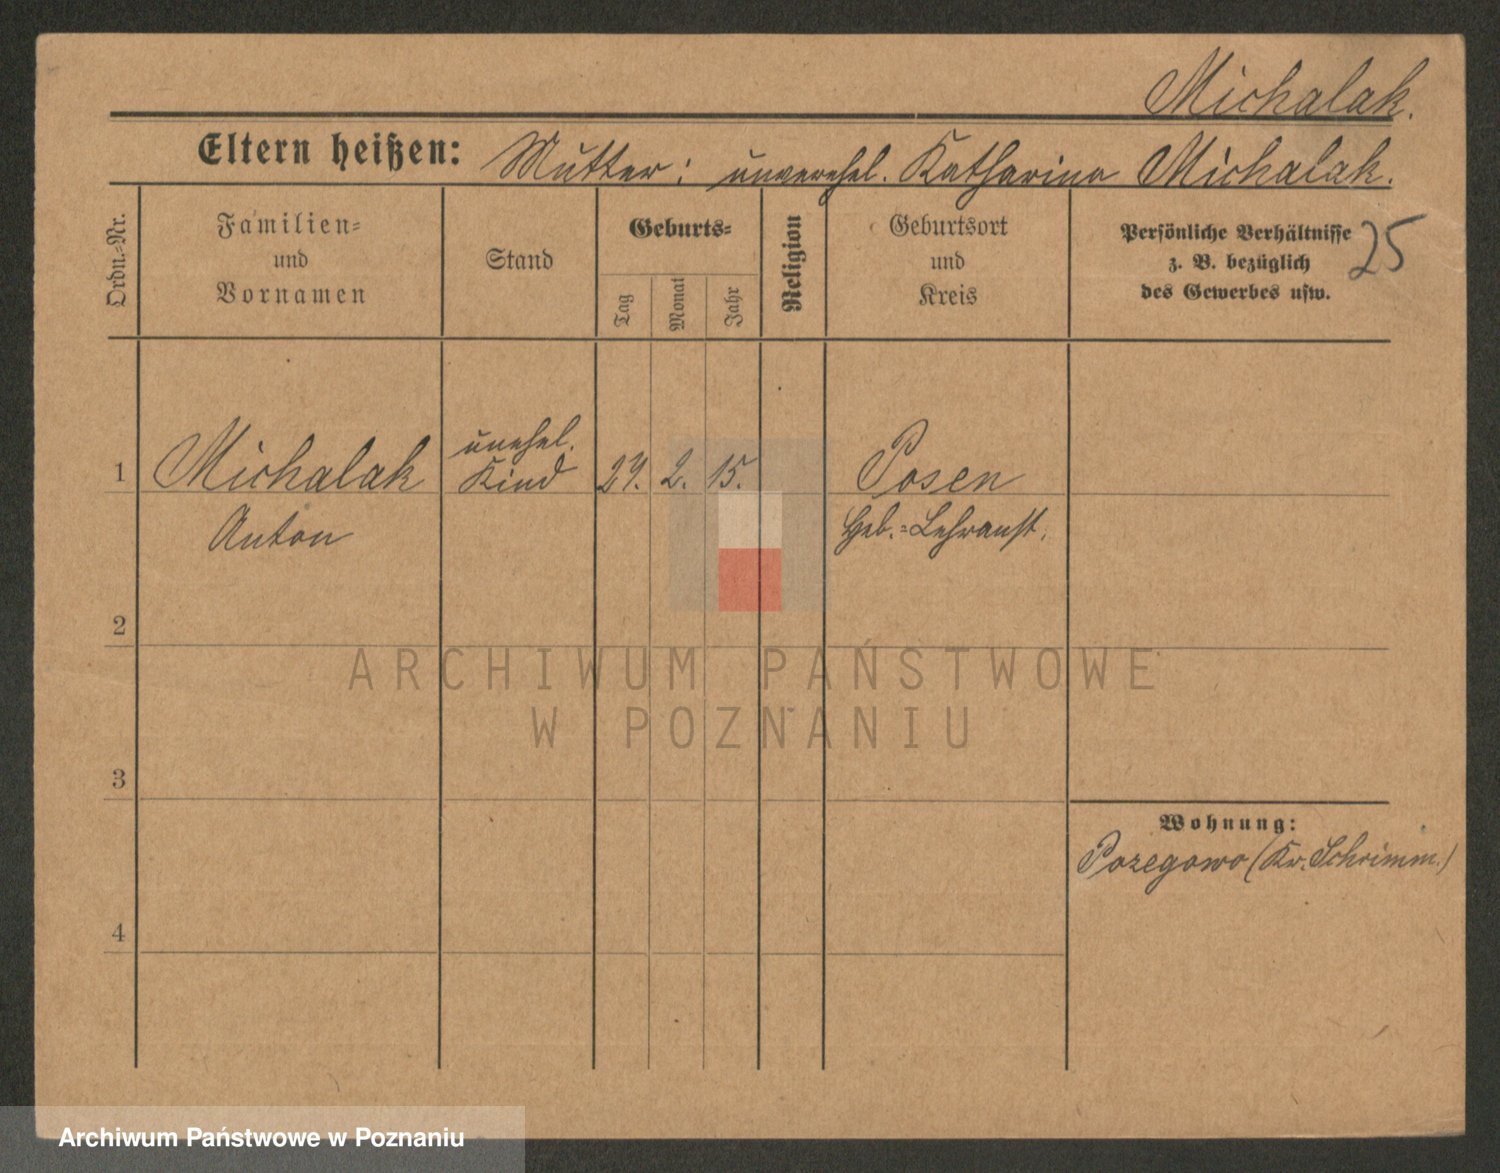 Michalak.
Eltern heißen: Mutter: unverehel. Katharina Michalak.
Ordn.-Nr.
Familien-
und
Vornamen
Stand
Geburts-
Tag
Monat
Jahr
Religion
Geburtsort
und
Kreis
Persönliche Verhältnisse
z. B. bezüglich
des Gewerbes usw.
25
1
Michalak
Anton
unehel.
Kind
2. 15.
Posen
Heb.-Lehranst.
2
3
4
Wohnung:
Pozegowo (Kr. Schrimm.)
ARCHIWUM PAŃSTWOWE
W POZNANIU
Archiwum Państwowe w Poznaniu